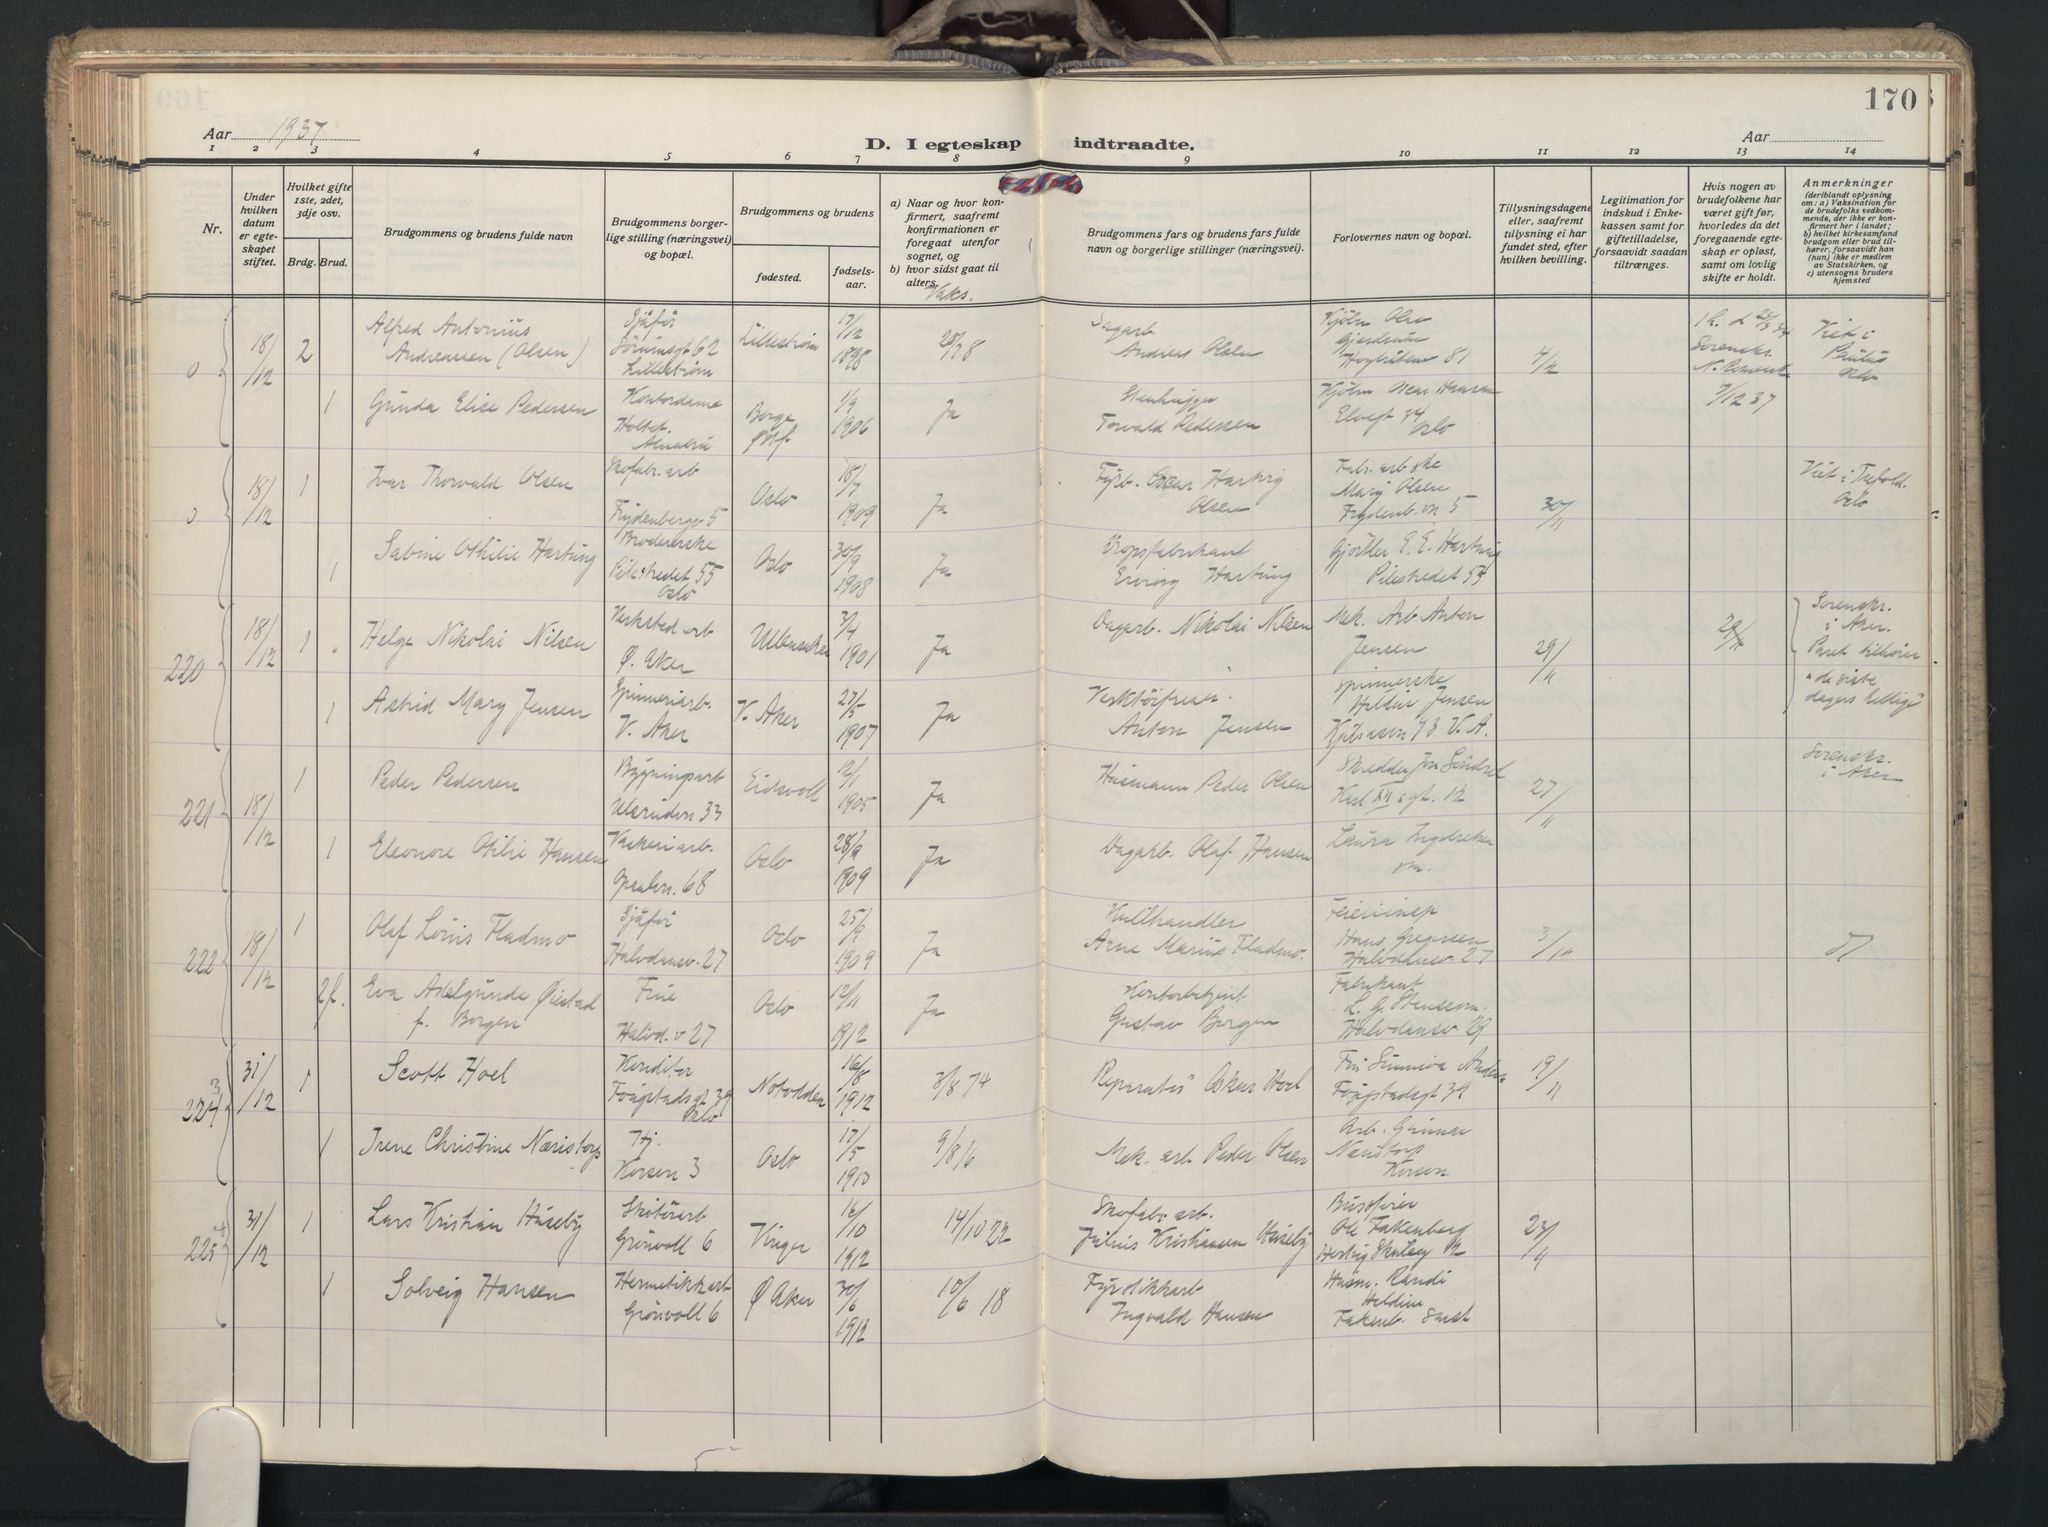 170
Aar 1937
D. I egteskap indtraadte.
Aar
1 2 3 4 5 6 7 8 9 10 11 12 13 14
Nr.
Under hvilken datum er egteskapet stiftet.
Hvilket gifte 1ste, 2det, 3dje osv.
Brdg. Brud.
Brudgommens og brudens fulde navn
Brudgommens borgerlige stilling (næringsvei) og bopæl.
Brudgommens og brudens
fødested.
fødselsaar.
a) Naar og hvor konfirmert, saafremt konfirmationen er foregaat utenfor sognet, og
b) hvor sidst gaat til alters.
Vaks.
Brudgommens fars og brudens fars fulde navn og borgerlige stillinger (næringsvei).
Forlovernes navn og bopæl.
Tillysningsdagene eller, saafremt tillysning ei har fundet sted, efter hvilken bevilling.
Legitimation for indskud i Enkekassen samt for giftetilladelse, forsaavidt saadan tiltrænges.
Hvis nogen av brudefolkene har været gift før, hvorledes da det foregaaende egteskap er opløst, samt om lovlig skifte er holdt.
Anmerkninger
(deriblandt oplysning om: a) Vaksination for de brudefolks vedkommende, der ikke er konfirmert her i landet; b) hvilket kirkesamfund brudgom eller brud tilhører, forsaavidt han (hun) ikke er medlem av Statskirken, og c) utensogns bruders hjemsted
0 18/12 2 Alfred Antonius Andreassen (Olsen)
Sjåfør Sørumsgt 62 Lillestrøm
Lillestrøm 17/12 1898
Sagarb. Andreas Olsen
Olsen Gjerdrum 81
Viet i Paulus Oslo
1 Gunda Elise Pedersen
Kontordame Holtet Alnabru
Borge Østf 1/9 1906 Ja
Stenhugger Torvald Pedersen
Oscar Hansen Elvegt 34 Oslo
7/12 37
18/12 1 Ivar Thorvald Olsen
Skofabr. arb Frydenbergv 5
Oslo 18/7 1909 Ja
Fyrb. Oscar Hartvig Olsen
Fabr. arb ske Mary Olsen Frydenb. vn 5
30/11
Viet i Oslo
1 Sabine Othilie Hartung
Broderske Pilestredet 55 Oslo
Oslo 30/9 1908 Ja
Erving Hartung
Gjørtler E. E. Hartung Pilestredet 55
220 18/12 1 Helge Nikolai Nilsen
Verksted arb Ø. Aker
Ullensaker 3/4 1901 Ja
Dagarb. Nikolai Nilsen
Mek. Arb Anton Jensen
29/11
Sorenskr. i Aker. Paret tilhører "de siste dagers hellige"
1 Astrid Mary Jensen
Spinneriarb. V. Aker
V. Aker 27/5 1907 Ja
Anton Jensen
Spinnerske Jensen 73 V. A.
221 18/12 1 Peder Pedersen
Bygningsarb Ulsrudvn 33
Eidsvoll 12/1 1905 Ja
Husmann Peder Olsen
Skredder Karl XII sgt. 12
27/11
Sorenskr. i Aker
1 Eleonore Otilie Hansen
Vaskeriarb. 68
Oslo 28/9 1909 Ja
Dagarb. Olaf Hansen
Laura
222 18/12 1 Olaf Louis Fladmo
Sjåfør Halvdansv. 27
Oslo 25/9 1909 Ja
Kullhandler Arne Marius Fladmo.
Feierinsp Hans Gregersen Halvdansv 27
3/10
2 f. Eva Adelgunde Øiestad f. Borgen
Frue Halvd. v 27
Oslo 12/11 1912 Ja
Kontorbetjent Gustav Borgen
Fabrikant L. G. Stensson. Halvdansv 29
223 31/12 1 Scott Hoel
Konditor Fougstadsgt 39 Oslo
Notodden 16/8 1912
3/8 74
Reparatør Oskar Hoel
Fru Sunniva Fougstadsgt 39
19/11
1 Irene Christine Næristorp
Hj. Korsvn 3
Oslo 17/5 1910
9/8 6
Mek. arb Peder Olsen
Arb. Gunnar Næristorp Korsvn
224 31/12 1 Lars Kristian Huseby
Skotøiarb Grønvoll 6
Vinger 16/10 1912
14/10 22
Skofabr arb. Julius Kristiansen Huseby
Bussfører Ole Fakenberg
23/11
1 Solveig Hansen
Hermetikkarb Grønvoll 6
Ø Aker 30/6 1912
10/6 18
Ingvald Hansen
Husm. Randi Heldine Fakenb. Samst